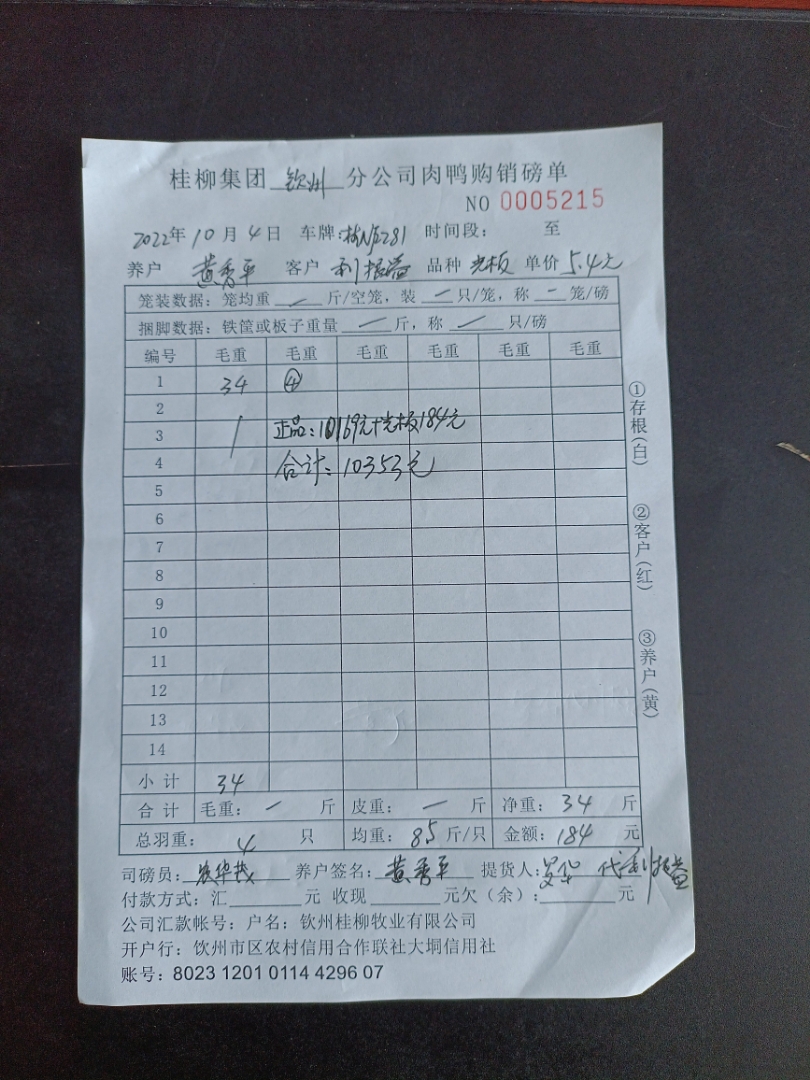 桂柳集团 钦州 分公司肉鸭购销磅单
NO 0005215
2022年 10月 4日 车牌: 时间段: 至
养户 黄秀平 客户 利振益 品种 光板 单价 5.4元
笼装数据: 笼均重 — 斤/空笼, 装 — 只/笼, 称 — 笼/磅
捆脚数据: 铁筐或板子重量 — 斤, 称 — 只/磅
编号 毛重 毛重 毛重 毛重 毛重 毛重
1 34 ④
2
3 正品: 10169元+光板184元
4 合计: 10353元
5
6
7
8
9
10
11
12
13
14
小计 34
合计 毛重: — 斤 皮重: — 斤 净重: 34 斤
总羽重: 4 只 均重: 85 斤/只 金额: 184 元
①存根(白)
②客户(红)
③养户(黄)
司磅员: 养户签名: 黄秀平 提货人: 代利振益
付款方式: 汇 元 收现 元欠(余): 元
公司汇款帐号: 户名: 钦州桂柳牧业有限公司
开户行: 钦州市区农村信用合作联社大垌信用社
账号: 8023 1201 0114 4296 07